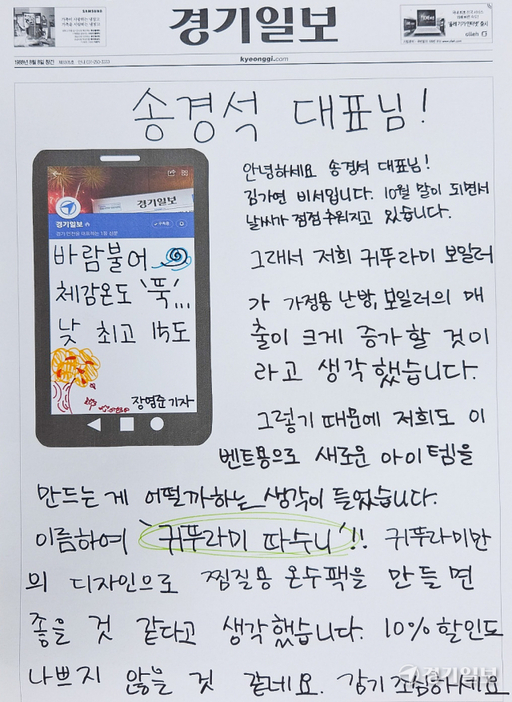 SAMSUNG
경기일보
olleh
kyeonggi.com
송경석 대표님!
안녕하세요 송경석 대표님!
김가연 비서입니다. 10월 말이 되면서
날씨가 점점 추워지고 있습니다.
그래서 저희 귀뚜라미 보일러
가 가정용 난방, 보일러의 매
출이 크게 증가할 것이
라고 생각했습니다.
그렇기 때문에 저희도 이
벤트용으로 새로운 아이템을
경기일보
경기일보
바람불어
체감온도 '뚝',,,
낮 최고 15도
장영준 기자
만드는 게 어떨까하는 생각이 들었습니다.
이름하여 '귀뚜라미 따수니'!! 귀뚜라미만
의 디자인으로 찜질용 온수팩을 만들면
좋을 것 같다고 생각했습니다. 10% 할인도
나쁘지 않을 것 같네요. 감기 조심하세요
경기일보